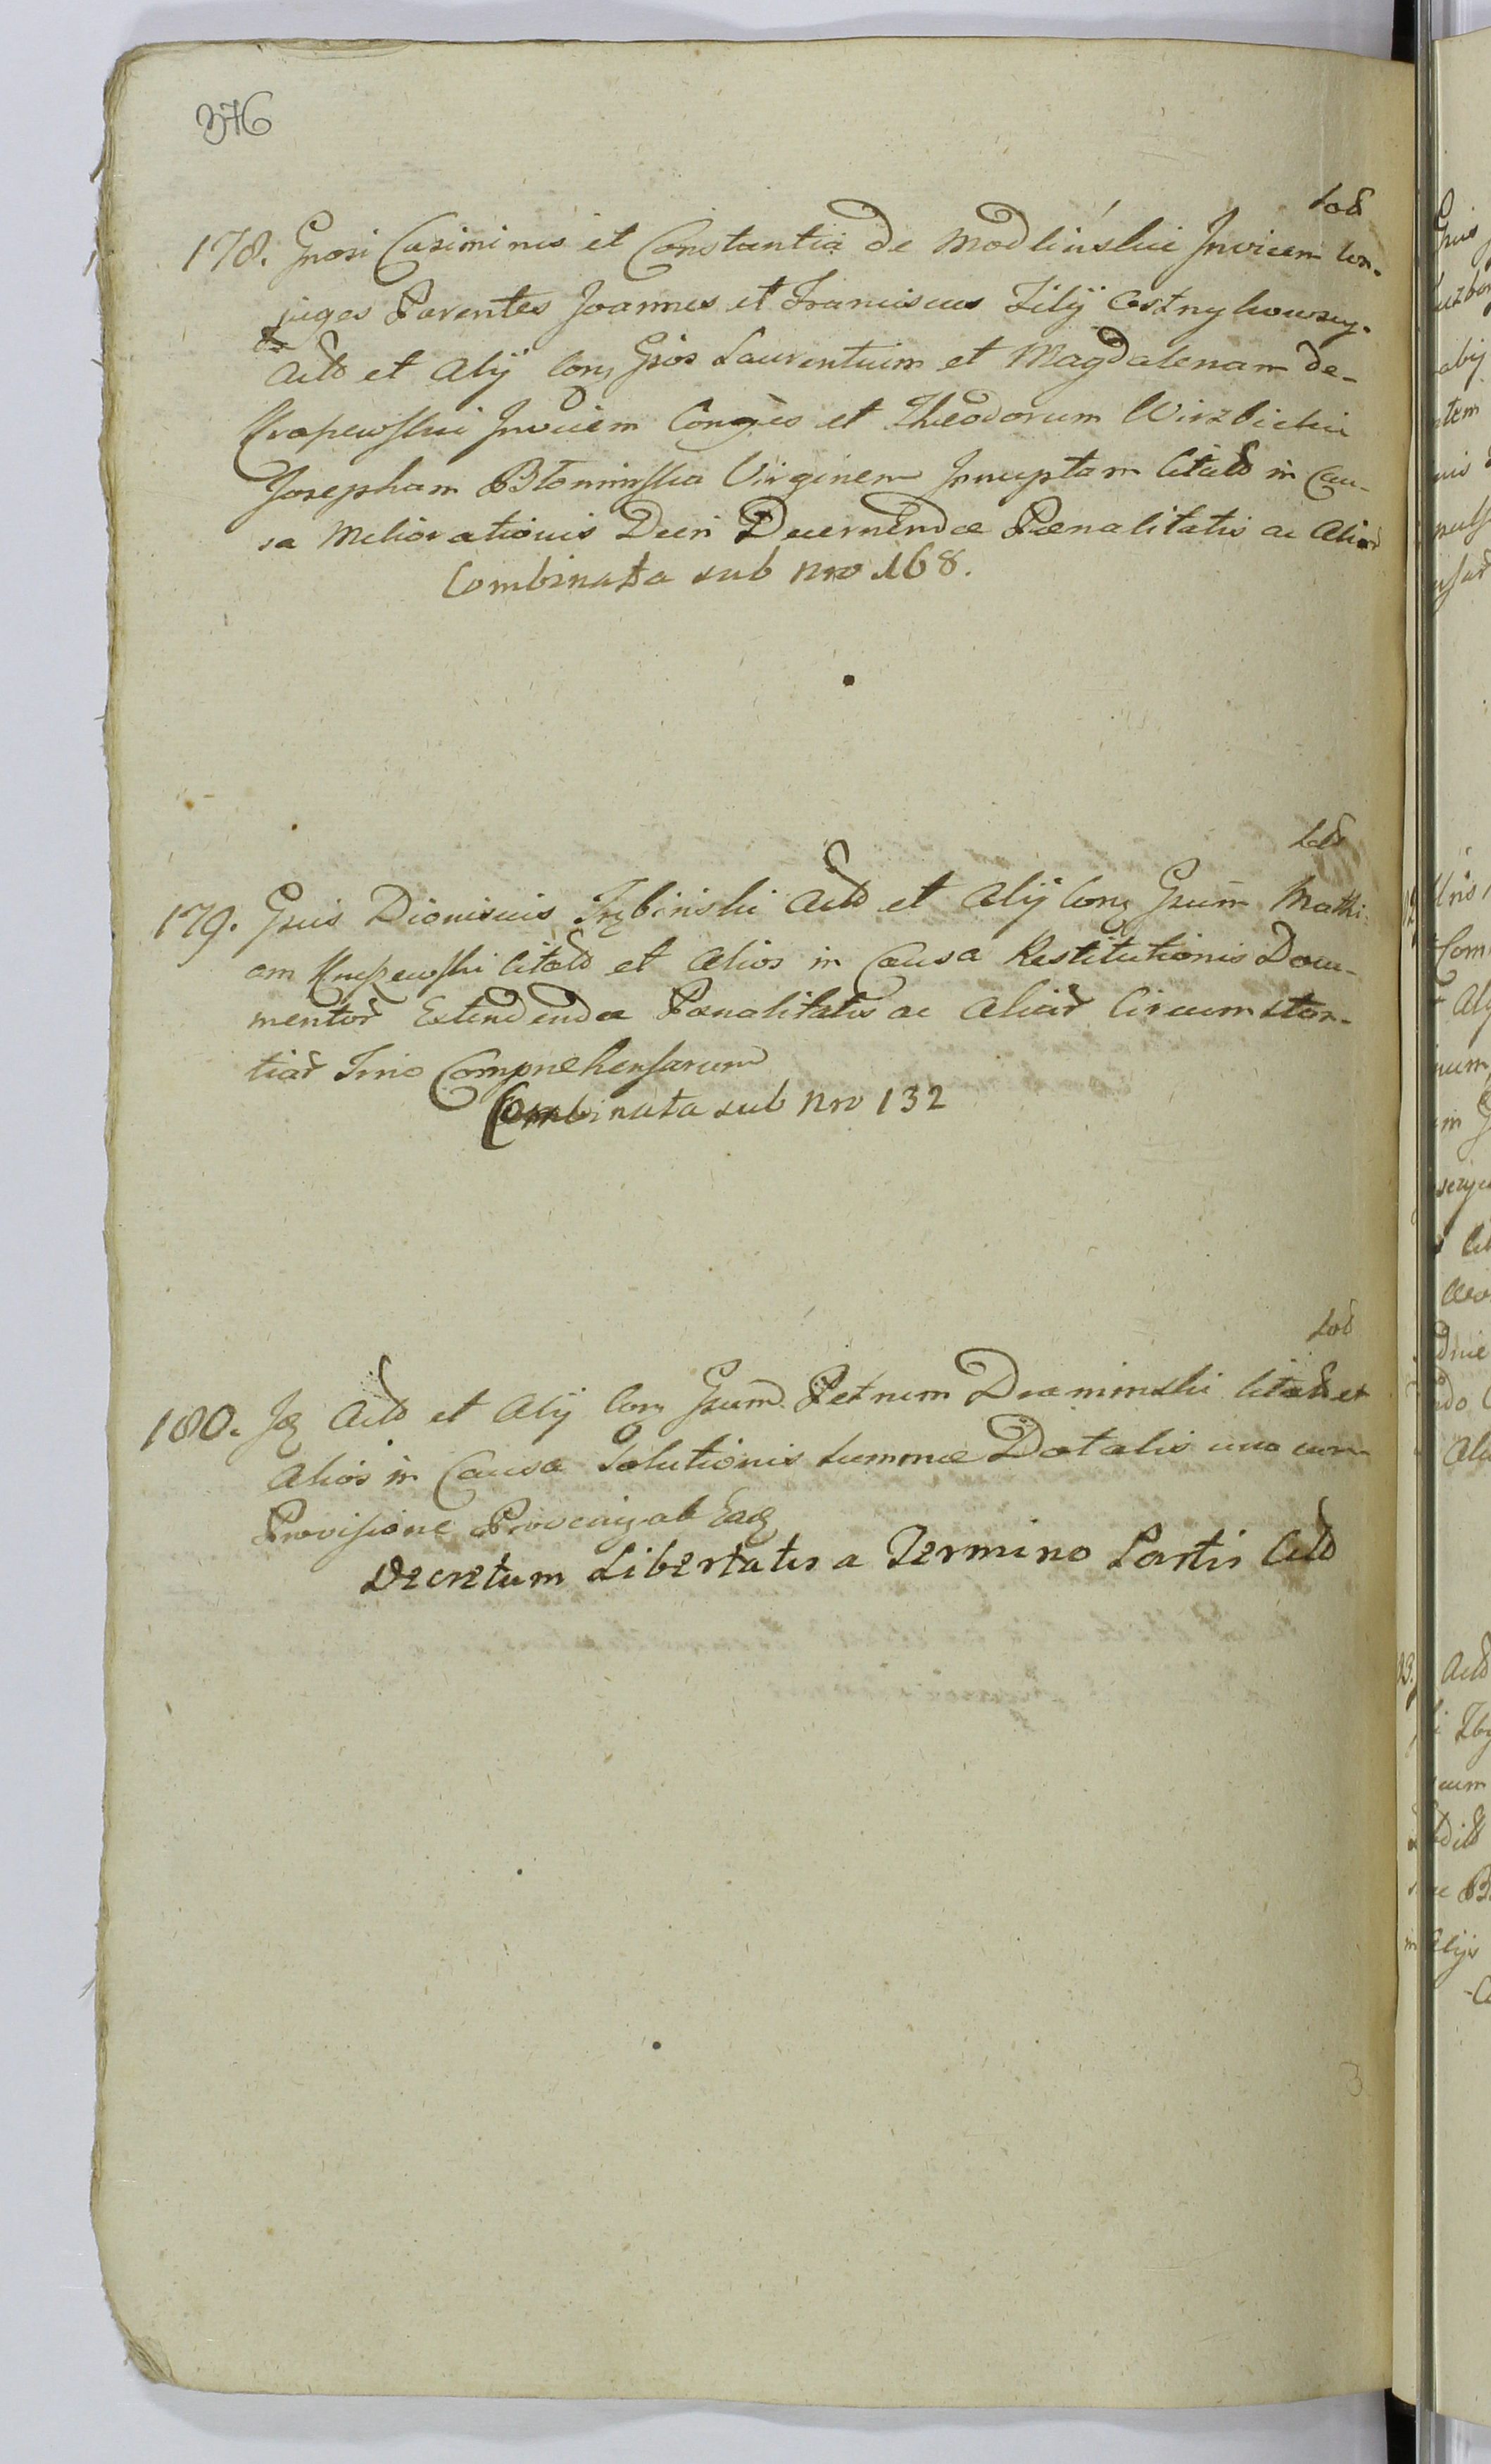 376
178. Gnosi Casimirus et Constantia de Modlińskie Invicem Con-
juges Parentes Joannes et Franciscus Filij
Actõ et Alij Con Gsos Laurentium et Magdalenam de-
Krapewskie Invicem Conges et Theodorum Wirzbickie
Josepham Błoninska Virginem Innuptam Citatõ in Cau-
sa Meliorationis Decri Decernendæ Pœnalitatis ac Aliar
Combinata sub Nro 168.
179. Gsus Dionisius Trębinski Actõ et Alij Con Gsum Mathi
am citatõ et Alios in Causa Restitutionis Docu-
mentor Extendendæ Pœnalitatis ac Aliar Circumstan-
tiar Comprehensarum
Combinata sub Nro 132
180. Actõ et Alij Con Gsum Petrum Draminski Citatõ et
Alios in Causa Solutionis Summæ Dotalis una cum
Provisione ab Eaq
Decretum Libertatis a Termino Partis Citõ